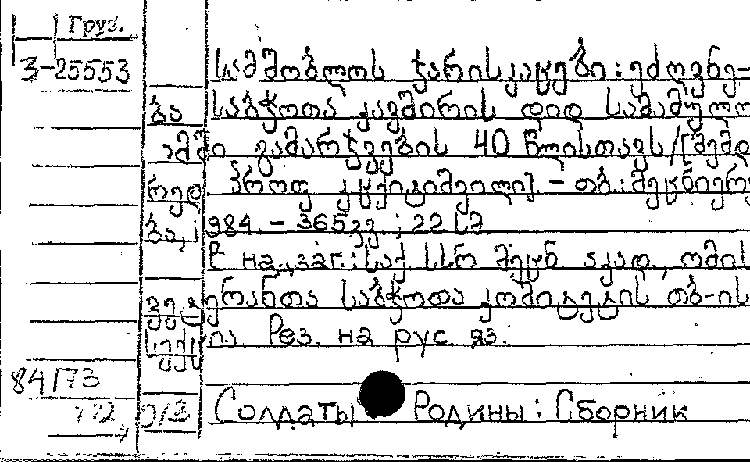 Груз.
3-25553
სამშობლოს ჯარისკაცები: ეძღვნე-
ბა საბჭოთა კავშირის დიდ სამამულო
ომში გამარჯვების 40 წლისთავს/[შემდ
რედ. პროფ კ ცქიტიშვილი]. – თბ: მეცნიერე
ბა, 1984. – 365 გვ. ; 22 სმ
В надзаг.: საქ სსრ მეცნ აკად., ომის
ვეტერანთა საბჭოთა კომიტეტის თბ-ის
სექცია. Рез. на рус яз.
84/73
772 0/2 Солдаты Родины: Сборник